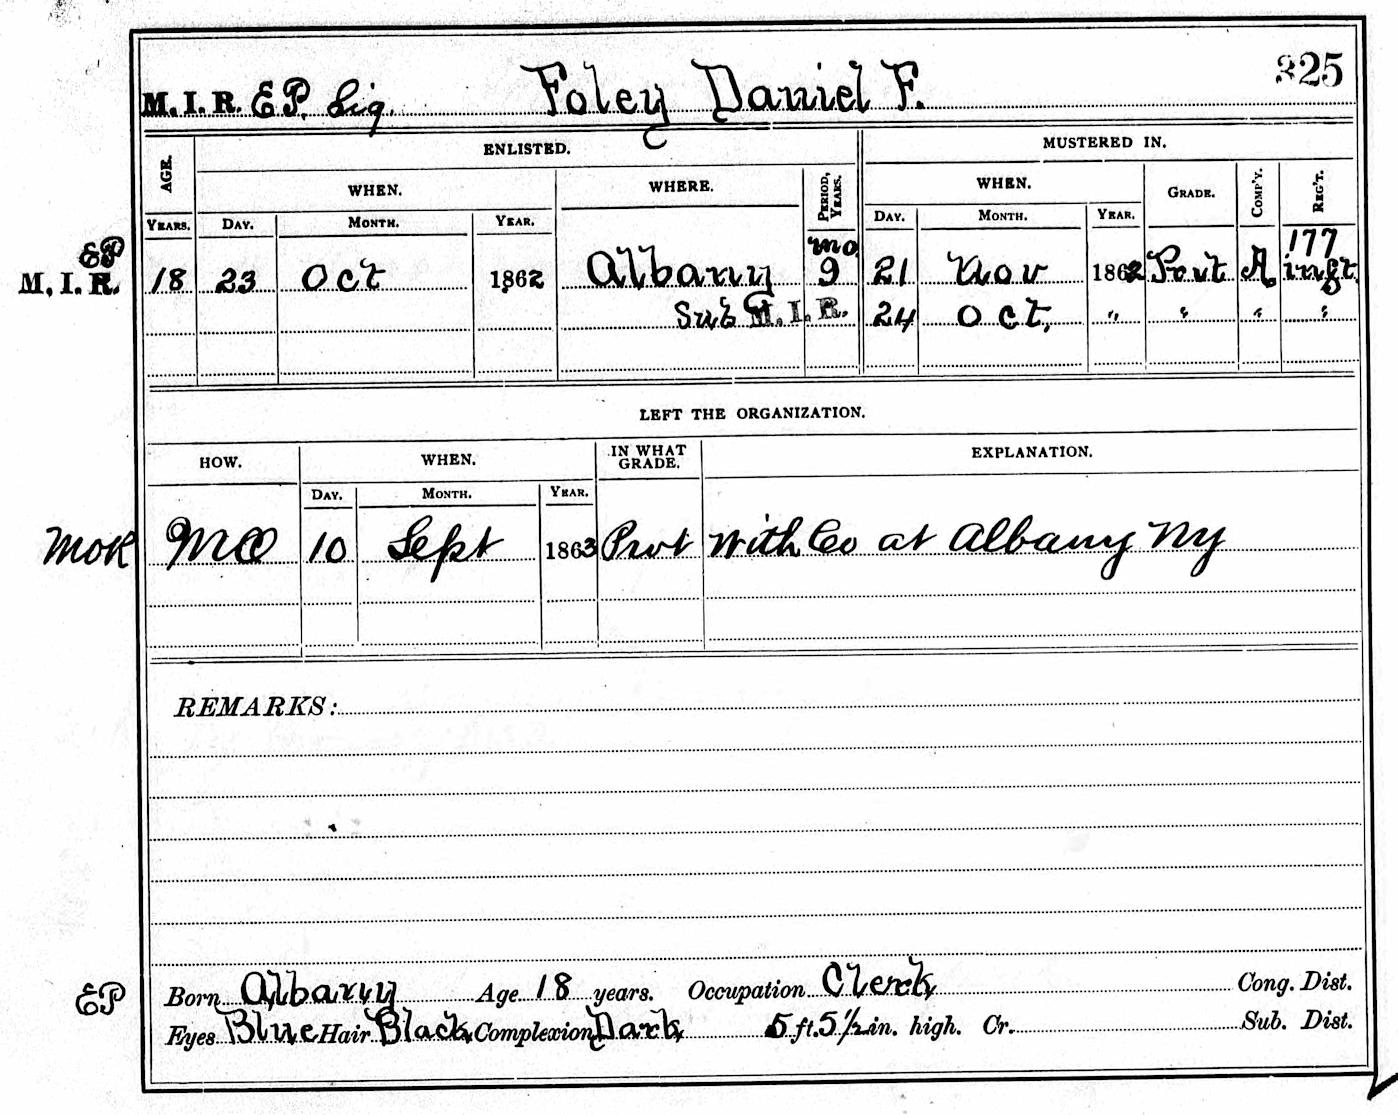 325
M. I. R. EP. Sig. Foley Daniel F.
ENLISTED. MUSTERED IN.
AGE. WHEN. WHERE. PERIOD, YEARS. WHEN. GRADE. COMP'Y. REG'T.
YEARS. DAY. MONTH. YEAR. DAY. MONTH. YEAR.
EP mo 177
M. I. R. 18 23 Oct 1862 Albany 9 21 Nov 1862 Prvt A inft.
Sub M. I. R. 24 Oct, " " " "
LEFT THE ORGANIZATION.
HOW. WHEN. IN WHAT GRADE. EXPLANATION.
DAY. MONTH. YEAR.
MOR MO 10 Sept 1863 Prvt With Co at Albany NY
REMARKS:
EP Born Albany Age 18 years. Occupation Clerk Cong. Dist.
Eyes Blue Hair Black Complexion Dark 5 ft. 5 1/2 in. high. Cr. Sub. Dist.